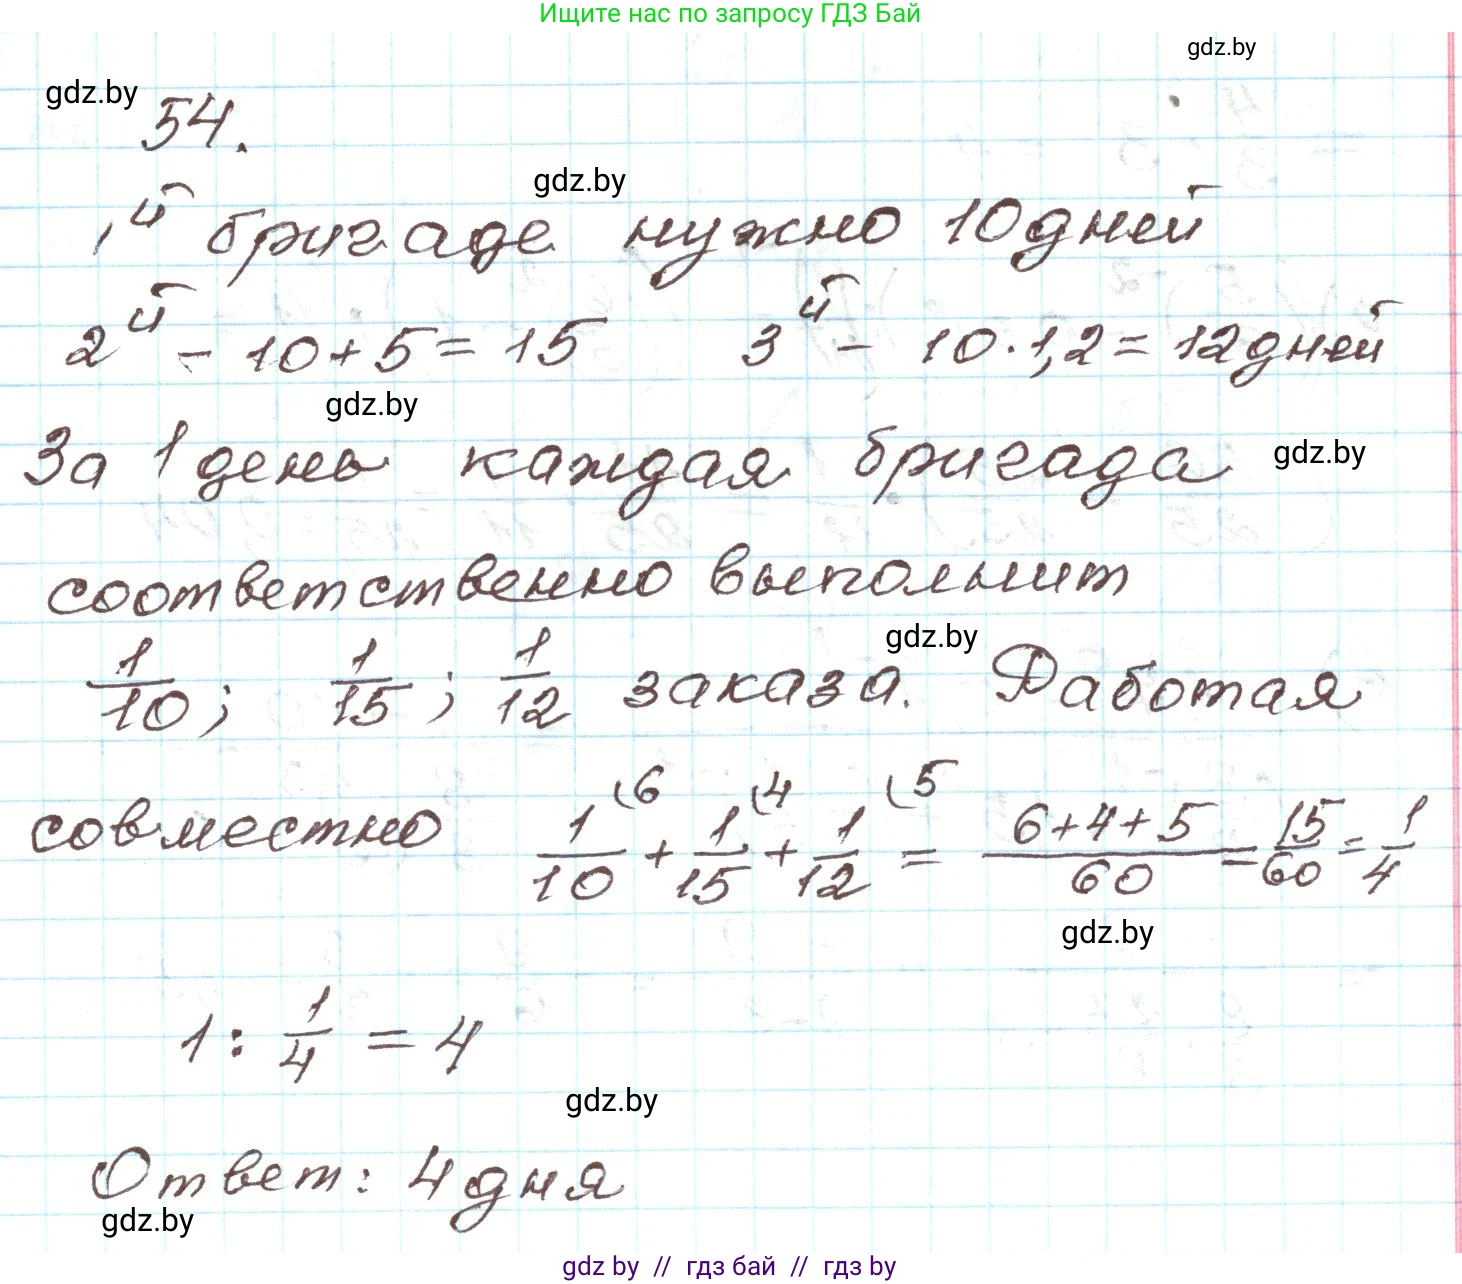 Ищите нас по запросу ГДЗ Бай
gdz.by
gdz.by
54.
gdz.by
1й бригаде нужно 10 дней
2й - 10 + 5 = 15 3й - 10 · 1,2 = 12 дней
gdz.by
За 1 день каждая бригада
gdz.by
соответственно выполнит
gdz.by
1/10; 1/15; 1/12 заказа. Работая
совместно 1/10 (6 + 1/15 (4 + 1/12 (5 = (6+4+5)/60 = 15/60 = 1/4
gdz.by
1 : 1/4 = 4
gdz.by
Ответ: 4 дня
gdz.by
gdz by // гдз бай // gdz by